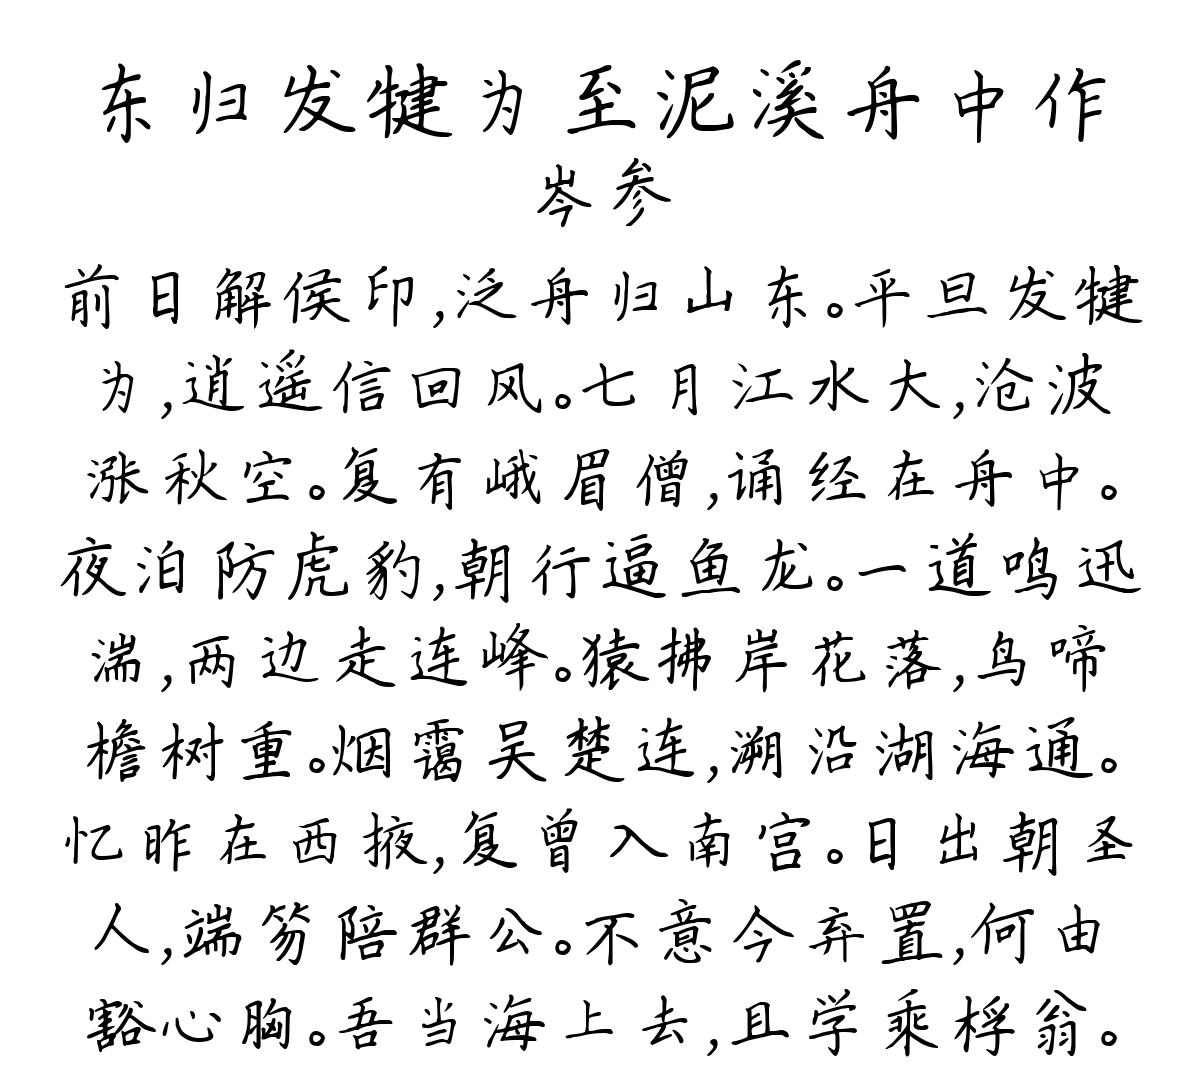 东归发犍为至泥溪舟中作
岑参
前日解侯印,泛舟归山东。平旦发犍
为,逍遥信回风。七月江水大,沧波
涨秋空。复有峨眉僧,诵经在舟中。
夜泊防虎豹,朝行逼鱼龙。一道鸣迅
湍,两边走连峰。猿拂岸花落,鸟啼
檐树重。烟霭吴楚连,溯沿湖海通。
忆昨在西掖,复曾入南宫。日出朝圣
人,端笏陪群公。不意今弃置,何由
豁心胸。吾当海上去,且学乘桴翁。